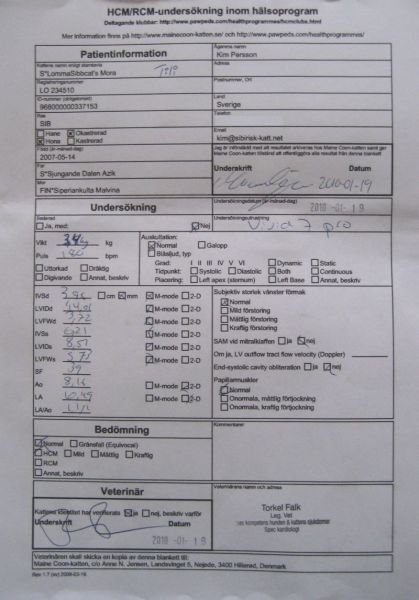 HCM/RCM-undersökning inom hälsoprogram
Deltagande klubbar: http://www.pawpeds.com/healthprogrammes/hcmclubs.html
Mer information finns på http://www.mainecoon-katten.se/ och http://www.pawpeds.com/healthprogrammes/
Patientinformation
Kattens namn enligt stamtavla
S*LommaSibbcat's Mora
Registreringsnummer
LO 234510
ID-nummer (obligatoriskt)
968000000337153
Ras
SIB
Hane Okastrerad
Hona Kastrerad
Född (år-månad-dag)
2007-05-14
Far
S*Sjungande Dalen Azik
Mor
FIN*Siperiankulta Malvina
Ägarens namn
Kim Persson
Adress
Postnummer, Ort
Land
Sverige
Telefon
Email
kim@sibirisk-katt.net
Jag är införstådd med att resultatet arkiveras hos Maine Coon-katten samt ger
Maine Coon-katten tillstånd att offentliggöra alla resultat från denna blankett
Underskrift Datum
2010-01-19
Undersökning
Sederad
Ja, med: Nej
Undersökningsdatum (år-månad-dag)
2010 -01- 19
Undersökningsutrustning
Vivid 7 pro
Vikt 3,4 kg kg
Puls 180 bpm
Uttorkad Dräktig
Digivande Annat, beskriv
Auskultation:
Normal Galopp
Blåsljud, typ
Grad: I II III IV V VI Dynamic Static
Tidpunkt: Systolic Diastolic Both Continuous
Placering: Left apex (sternum) Left Base Annat, beskriv
IVSd cm mm M-mode 2-D
LVIDd M-mode 2-D
LVFWd M-mode 2-D
IVSs M-mode 2-D
LVIDs M-mode 2-D
LVFWs M-mode 2-D
SF 39
Ao 8,16 M-mode 2-D
LA M-mode 2-D
LA/Ao
Subjektiv storlek vänster förmak
Normal
Mild förstoring
Måttlig förstoring
Kraftig förstoring
SAM vid mitralklaffen ja nej
Om ja, LV outflow tract flow velocity (Doppler)
End-systolic cavity obliteration ja nej
Papillarmuskler
Normal
Onormala, måttlig förtjockning
Onormala, kraftig förtjockning
Bedömning
Normal Gränsfall (Equivocal)
HCM Mild Måttlig Kraftig
RCM
Annat, beskriv
Kommentarer
Veterinär
Kattens identitet har verifierats ja nej, beskriv varför
Underskrift Datum
2010 -01- 19
Veterinärens namn och adress
Torkel Falk
Leg. Vet
Spec kardiologi
Veterinären skall skicka en kopia av denna blankett till:
Maine Coon-katten, c/o Anne N. Jensen, Landevinget 5, Nejede, 3400 Hillerød, Denmark